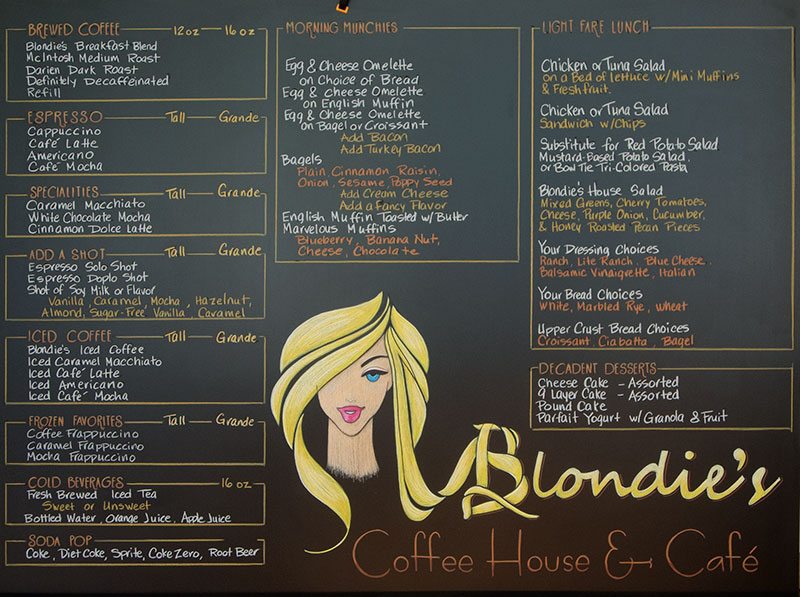 BREWED COFFEE 12 oz 16 oz
Blondie's Breakfast Blend
McIntosh Medium Roast
Darien Dark Roast
Definitely Decaffeinated
Refill
ESPRESSO Tall Grande
Cappuccino
Café Latte
Americano
Café Mocha
SPECIALITIES Tall Grande
Caramel Macchiato
White Chocolate Mocha
Cinnamon Dolce Latte
ADD A SHOT Tall Grande
Espresso Solo Shot
Espresso Doplo Shot
Shot of Soy Milk or Flavor
Vanilla, Caramel, Mocha, Hazelnut,
Almond, Sugar-Free Vanilla, Caramel
ICED COFFEE Tall Grande
Blondie's Iced Coffee
Iced Caramel Macchiato
Iced Café Latte
Iced Americano
Iced Café Mocha
FROZEN FAVORITES Tall Grande
Coffee Frappuccino
Caramel Frappuccino
Mocha Frappuccino
COLD BEVERAGES 16 oz
Fresh Brewed Iced Tea
Sweet or Unsweet
Bottled Water, Orange Juice, Apple Juice
SODA POP
Coke, Diet Coke, Sprite, Coke Zero, Root Beer
MORNING MUNCHIES
Egg & Cheese Omelette
on Choice of Bread
Egg & Cheese Omelette
on English Muffin
Egg & Cheese Omelette
on Bagel or Croissant
Add Bacon
Add Turkey Bacon
Bagels
Plain, Cinnamon Raisin,
Onion, Sesame, Poppy Seed
Add Cream Cheese
Add a fancy Flavor
English Muffin Toasted w/ Butter
Marvelous Muffins
Blueberry, Banana Nut,
Cheese, Chocolate
LIGHT FARE LUNCH
Chicken or Tuna Salad
on a Bed of lettuce w/ Mini Muffins
& Fresh fruit.
Chicken or Tuna Salad
Sandwich w/ Chips
Substitute for Red Potato Salad
Mustard-Based Potato Salad,
or Bow Tie Tri-Colored Pasta
Blondie's House Salad
Mixed Greens, Cherry Tomatoes,
Cheese, Purple Onion, Cucumber,
& Honey Roasted Pecan Pieces
Your Dressing Choices
Ranch, Lite Ranch, Blue Cheese,
Balsamic Vinaigrette, Italian
Your Bread Choices
White, Marbled Rye, Wheat
Upper Crust Bread Choices
Croissant, Ciabatta, Bagel
DECADENT DESSERTS
Cheese Cake - Assorted
9 Layer Cake - Assorted
Pound Cake
Parfait Yogurt w/ Granola & Fruit
Blondie's
Coffee House & Café